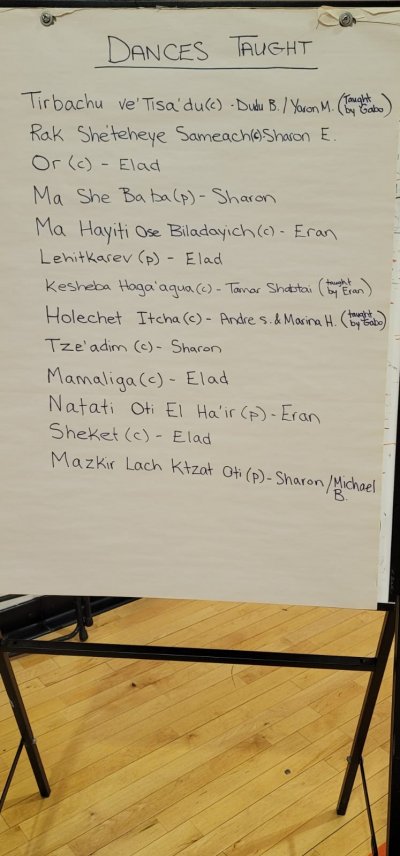 DANCES TAUGHT
Tirbachu ve'Tisa'du(c) - Dudu B. / Yaron M. (Taught by Gabo)
Rak She'teheye Sameach(c)-Sharon E.
Or (c) - Elad
Ma She Ba ba (p) - Sharon
Ma Hayiti Ose Biladayich (c) - Eran
Lehitkarev (p) - Elad
Kesheba Haga'agua (c) - Tamar Shabtai (taught by Eran)
Holechet Itcha (c) - Andre S. & Marina H. (taught by Gabo)
Tze'adim (c) - Sharon
Mamaliga (c) - Elad
Natati Oti El Ha'ir (p) - Eran
Sheket (c) - Elad
Mazkir Lach Ktzat Oti (p) - Sharon / Michael B.